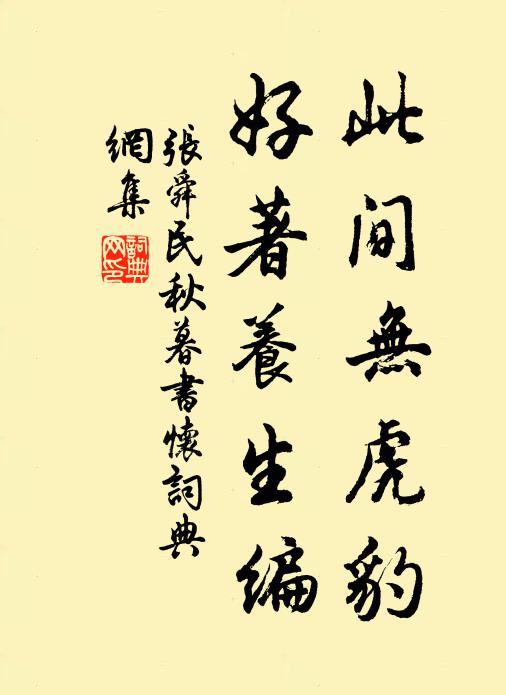 此間無虎豹
好著養生編
張舜民秋暮書懷詞典
網集
詞典
网印